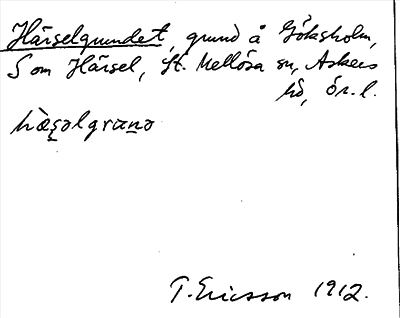 Härselgrundet, grund å Göksholm,
S om Härsel, St. Mellösa sn, Askers
hd, Ör. l.
hæ̀ʂəlgrɯnə
T. Ericsson 1912.